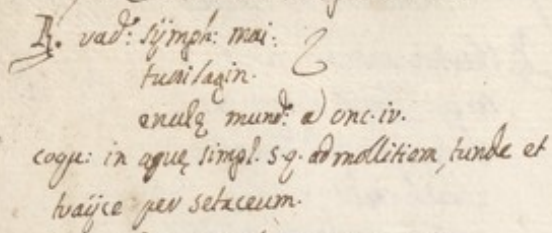 ℞. rad: sÿmph: mai:
tussilagin.
enulę mund: a) onc. iv.
coque: in aquę simpl. s.q. ad mollitiem, tunde et
traÿce per setaceum.